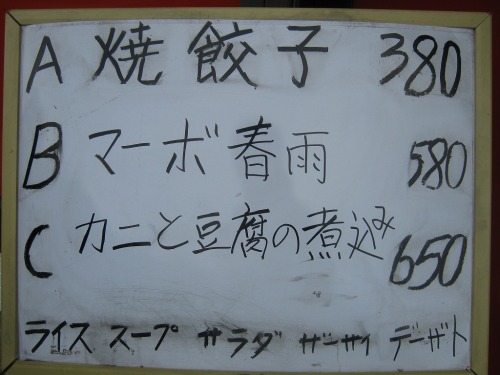 A 焼餃子 380
B マーボ春雨 580
C カニと豆腐の煮込み 650
ライス スープ サラダ ザーサイ デザート